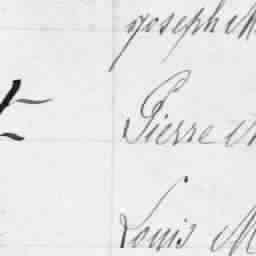 joseph M
Pierre
Louis M